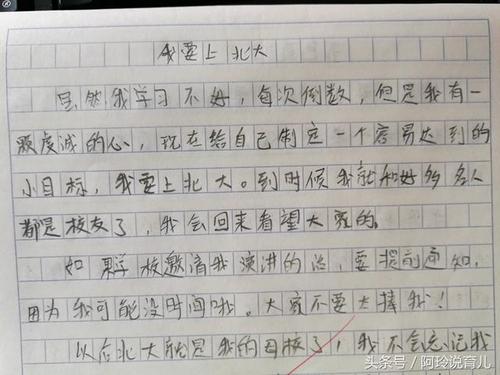 我要上北大
虽然我学习不好，每次倒数，但是我有一
颗虔诚的心，现在给自己制定一个容易达到的
小目标，我要上北大。到时候我就和好多名人
都是校友了，我会回来看望大家的。
如果学校邀请我演讲的话，要提前通知，
因为我可能没时间哦。大家不要太捧我！
以后北大就是我的母校了，我不会忘记我
头条号 / 阿玲说育儿